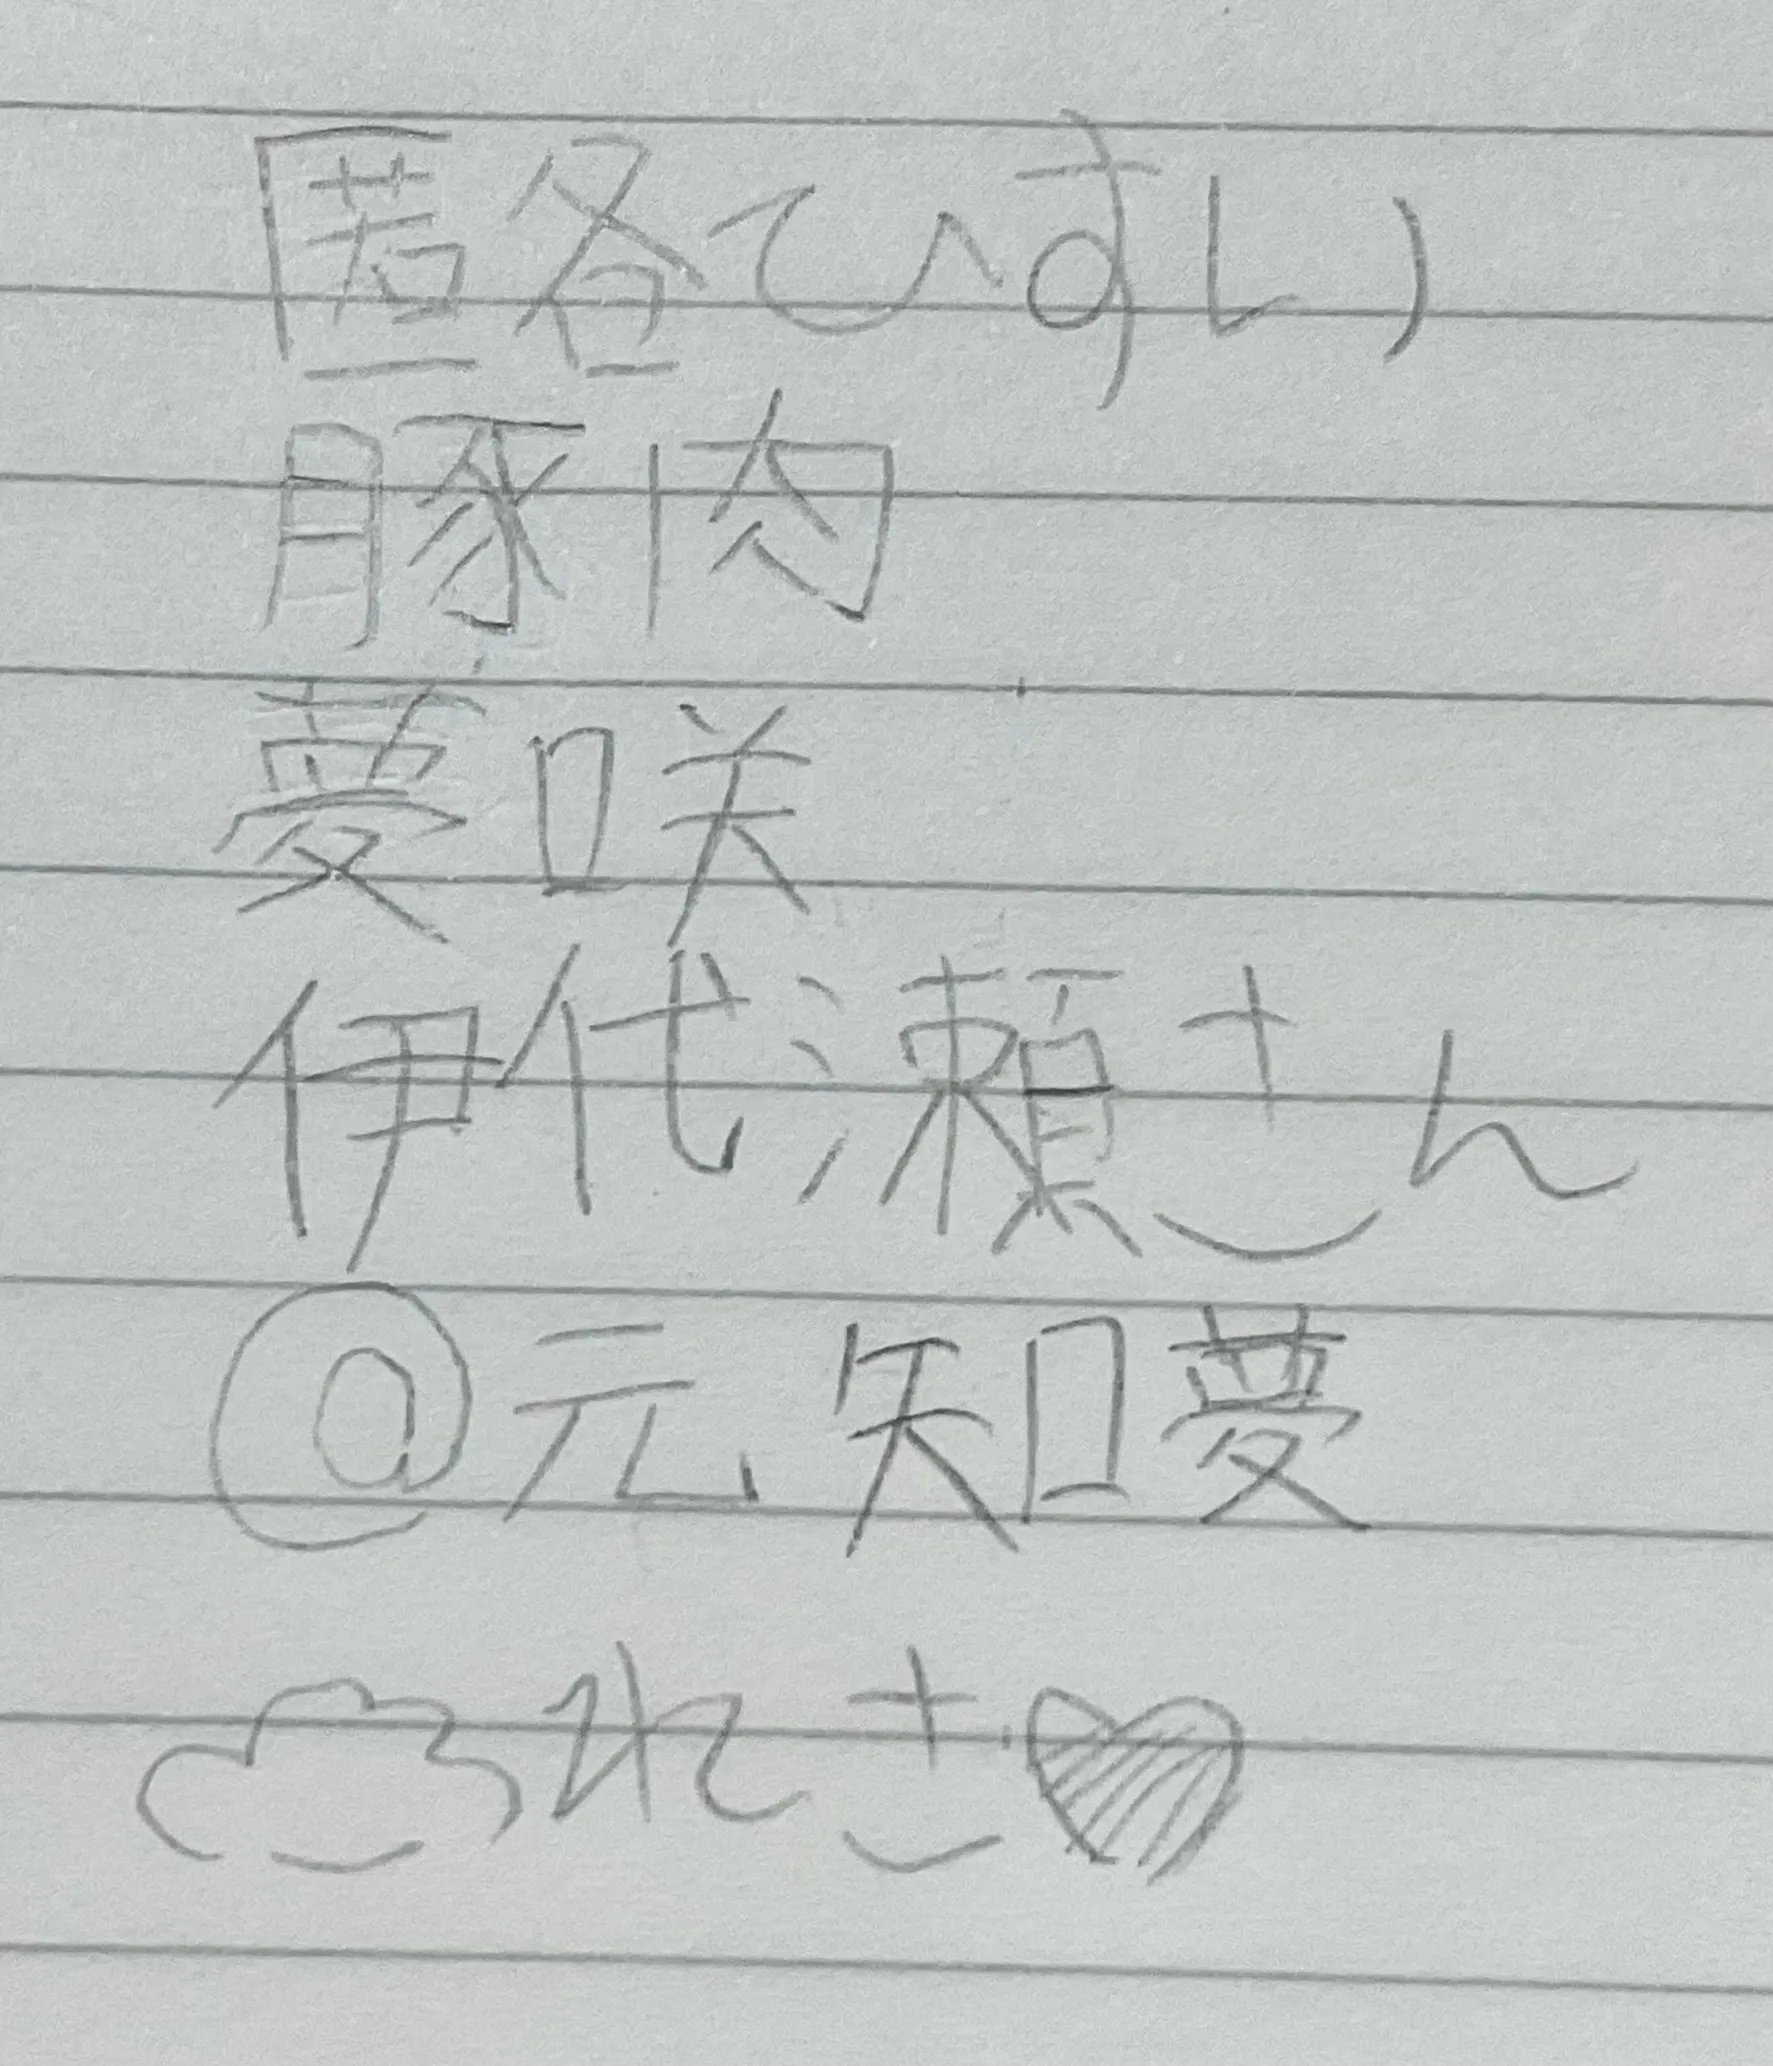 匿名ひすい
豚肉
夢咲
伊代瀬さん
@元知夢
れさ♥